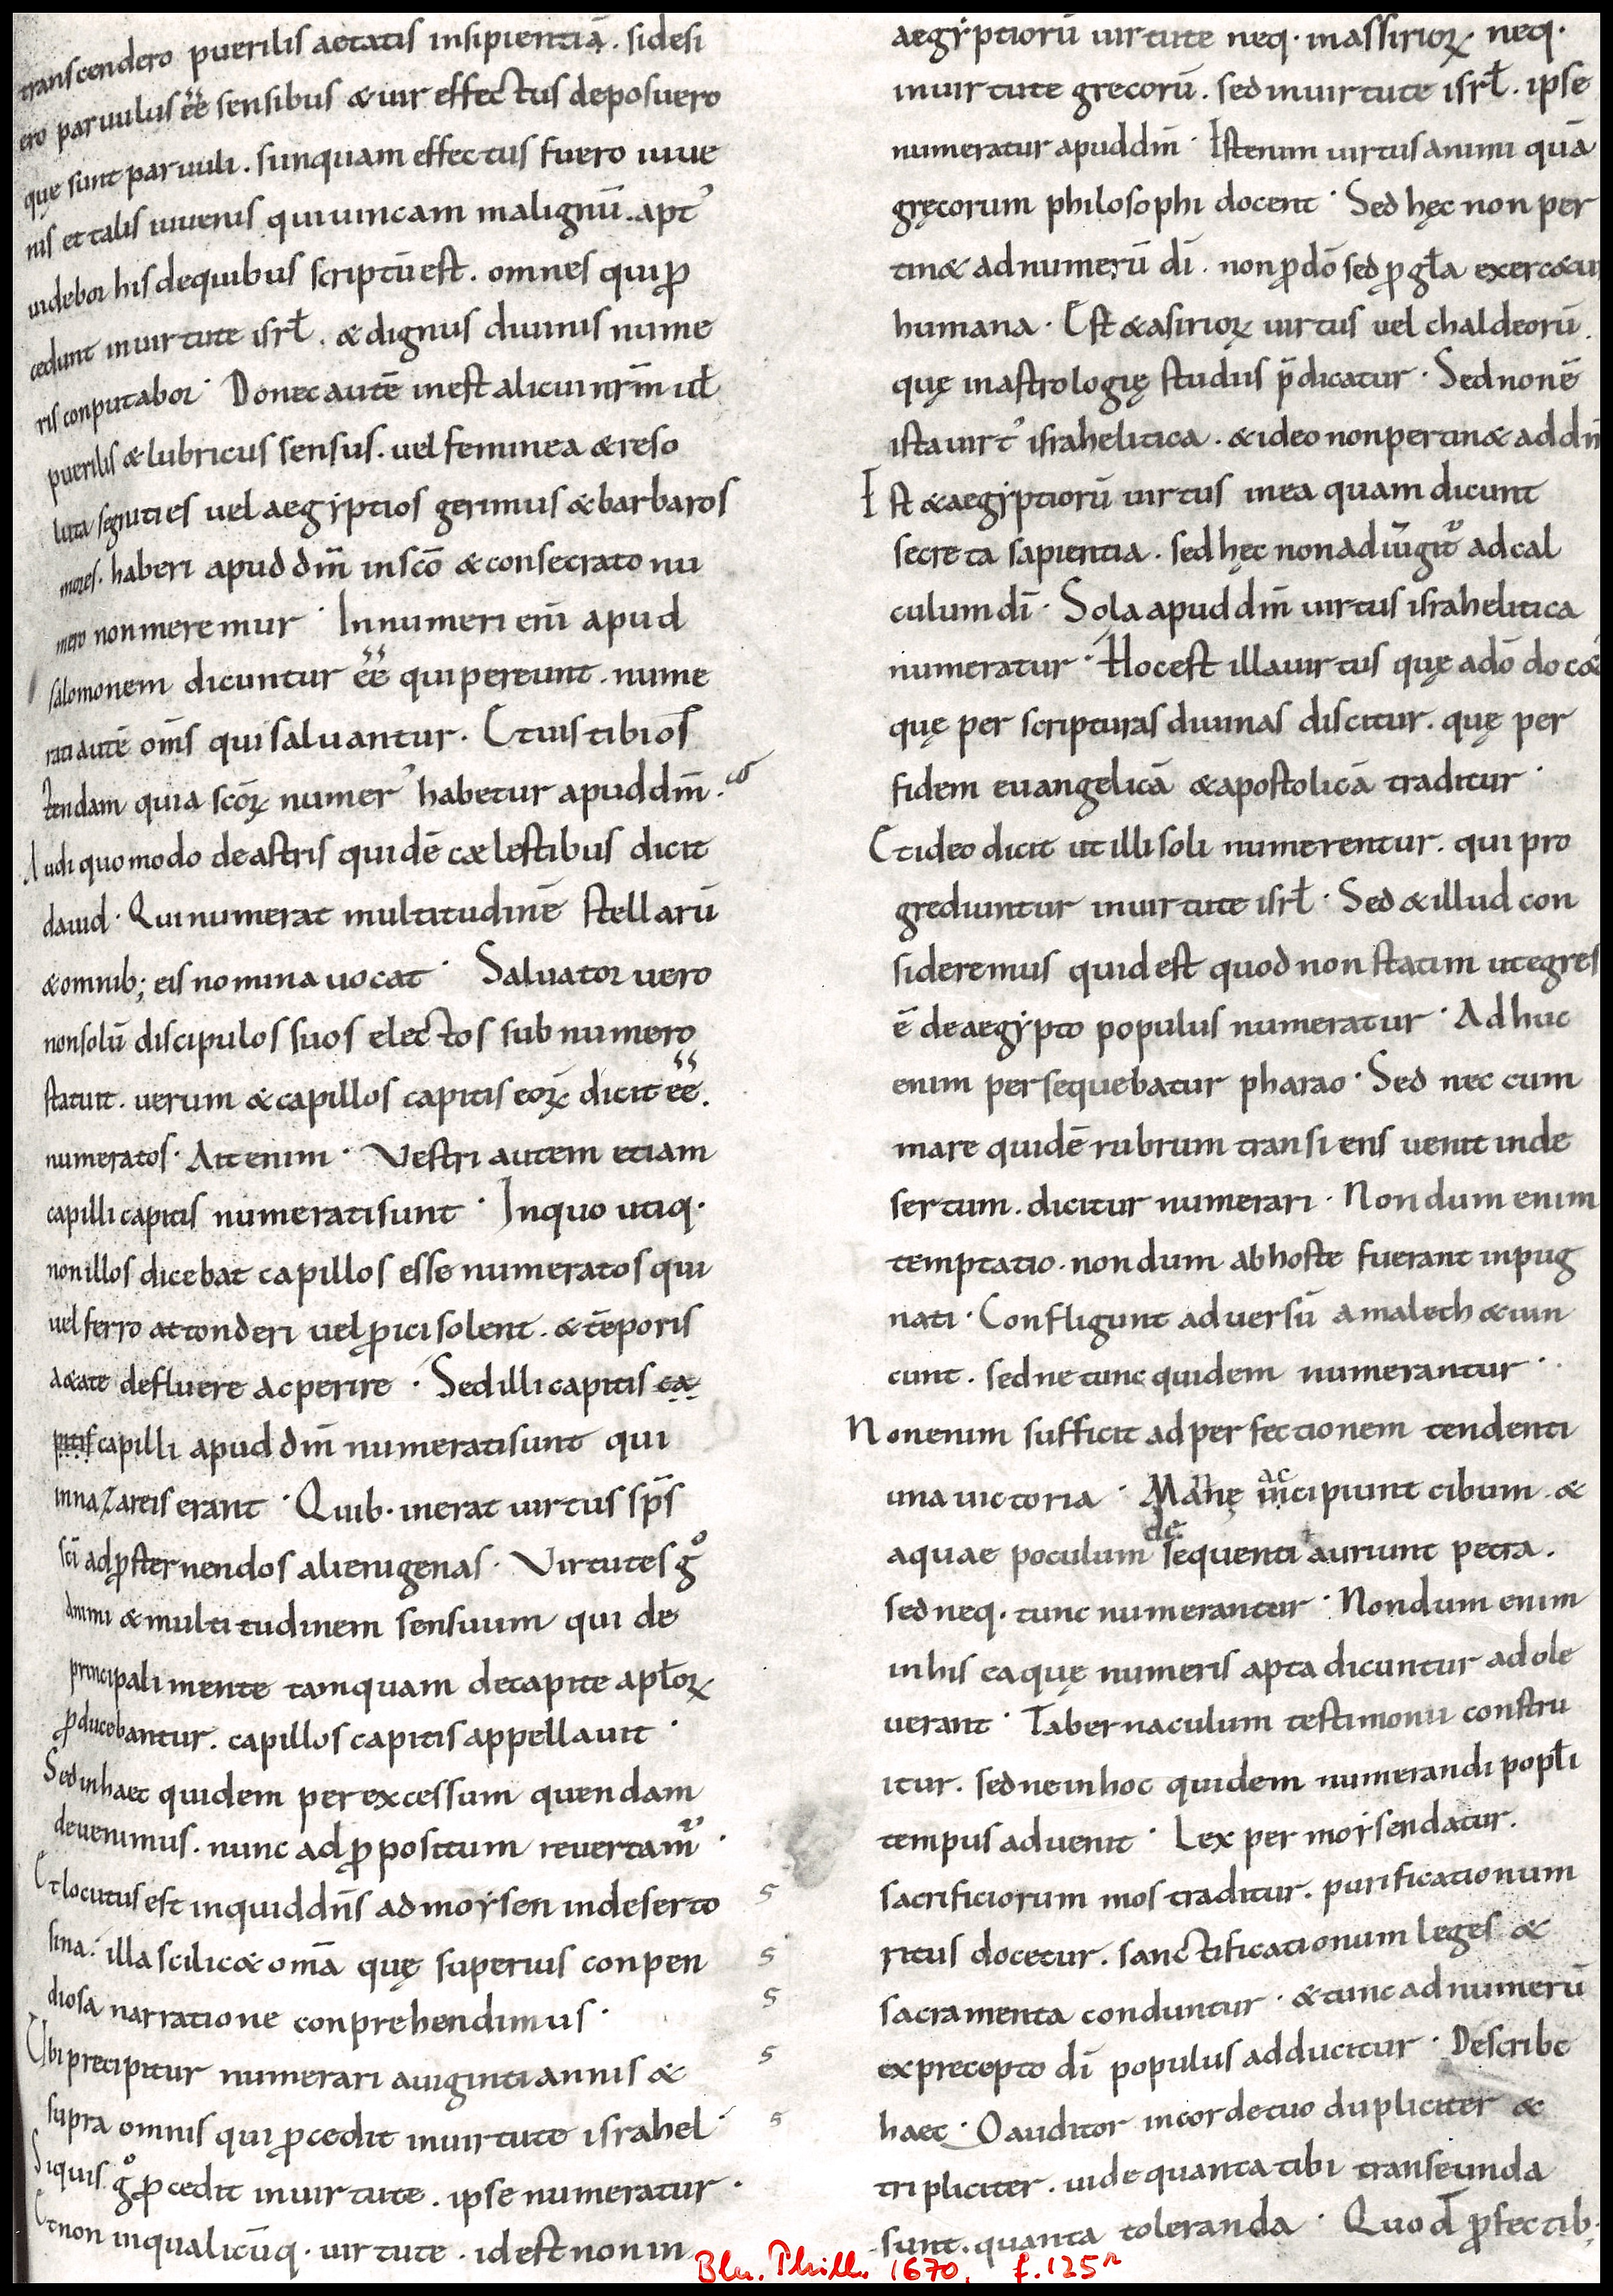 transcendero puerilis aetatis insipientiā. sidesi
ero paruulus ēē sensibus & uir effectus deposuero
quę sunt paruuli. sunquam effectus fuero iuue
nis et talis iuuenis quiuincam malignū. apt'
uidebor his dequibus scriptūest. omnes qui ꝓ
cedunt inuirtute isrł. & dignus diuinis nume
ris conputabor· Donec autē inest alicui nrm̄ uł
puerilis & lubricus sensus. uel feminea & reso
luta segnities uel aegẏptios gerimus & barbaros
mores. haberi apud dm̄ insc̄o & consecrato nu
mero nonmeremur· Innumeri enī apud
salomonem dicuntur ēē qui pereunt. nume
rati autē om̄s qui saluantur. Et uis tibi os
tendam quia sc̄oꝝ numer' habetur apud dm̄.
Audi quomodo de astris quidē caelestibus dicit
dauid· Qui numerat multitudinē stellarū
& omnib; eis nomina uocat· Saluator uero
nonsolū discipulos suos electos sub numero
statuit. uerum & capillos capitis eoꝝ dicit ēē.
numeratos· Ait enim· Vestri autem etiam
capilli capitis numerati sunt· Inquo utiq·
non illos dicebat capillos esse numeratos qui
uel ferro attonderi uel ꝓici solent. & tēporis
a&ate defluere ac perire· Sed illi capitis ca
pitis capilli apud dm̄ numerati sunt qui
innazareis erant· Quib· inerat uirtus sp̄s
sc̄i ad ꝓsternendos alienigenas· Virtutes gͦ
animi & multitudinem sensuum qui de
principali mente tamquam de capite apłoꝝ
ꝓducebantur. capillos capitis appellauit·
Sed in haec quidem per excessum quendam
deuenimus. nunc ad ꝓpositum reuertam'·
Et locutus est inquid dn̄s ad moẏsen indeserto
sina· illa scilic& om̄a quę superius conpen
diosa narratione conprehendimus·
Ubi precipitur numerari auiginti annis &
supra omnis qui ꝓcedit inuirtute israhel·
Siquis gͦ ꝓcedit inuirtute. ipse numeratur·
Et non inqualicūq· uirtute. id est non in
aegẏptiorū uirtute neq· inassirioꝝ neq·
inuirtute grecorū. sed inuirtute isrł. ipse
numeratur apud dm̄· Est enim uirtus animi quā
gręcorum philosophi docent· Sed hęc non per
tin& ad numerū dī. non ꝓ dō sed ꝓ gła exerc&ur
humana· Est & asirioꝝ uirtus uel chaldeorū.
quę inastrologię studiis p̄dicatur· Sed non ē
ista uirt' israhelitica. & ideo non pertin& ad dm̄
Est & aegẏptiorū uirtus inea quam dicunt
secreta sapientia. sed hęc non adiūgit' ad cal
culum dī· Sola apud dm̄ uirtus israhelitica
numeratur· Hoc est illa uirtus quę a dō doc&
quę per scripturas diuinas discitur. quę per
fidem euangelicā & apostolicā traditur·
Et ideo dicit ut illi soli numerentur. qui pro
grediuntur inuirtute isrł· Sed & illud con
sideremus quid est quod non statim ut egres
ē de aegẏpto populus numeratur· Adhuc
enim persequebatur pharao· Sed nec cum
mare quidē rubrum transiens uenit inde
sertum. dicitur numerari· Nondum enim
temptatio. nondum ab hoste fuerant inpug
nati· Confligunt aduersū amalech & uin
cunt. sed ne tunc quidem numerantur·
Non enim sufficit ad perfectionem tendenti
una uictoria· Mannę incipiunt cibum &
aquae poculum de sequenti auriunt petra.
sed neq· tunc numerantur· Nondum enim
in his ea quę numeris apta dicuntur adole
uerant· Tabernaculum testimonii constru
itur. sed ne in hoc quidem numerandi popłi
tempus aduenit· Lex per moẏsen datur.
sacrificiorum mos traditur. purificationum
ritus docetur. sanctificationum leges &
sacramenta conduntur· & tunc ad numerū
ex precepto dī populus adducitur· Describe
haec· O auditor incorde tuo dupliciter &
tripliciter. uide quanta tibi transeunda
sunt. quanta toleranda· Quod ꝓfectib;
Bln. Phill. 1670, f. 125r